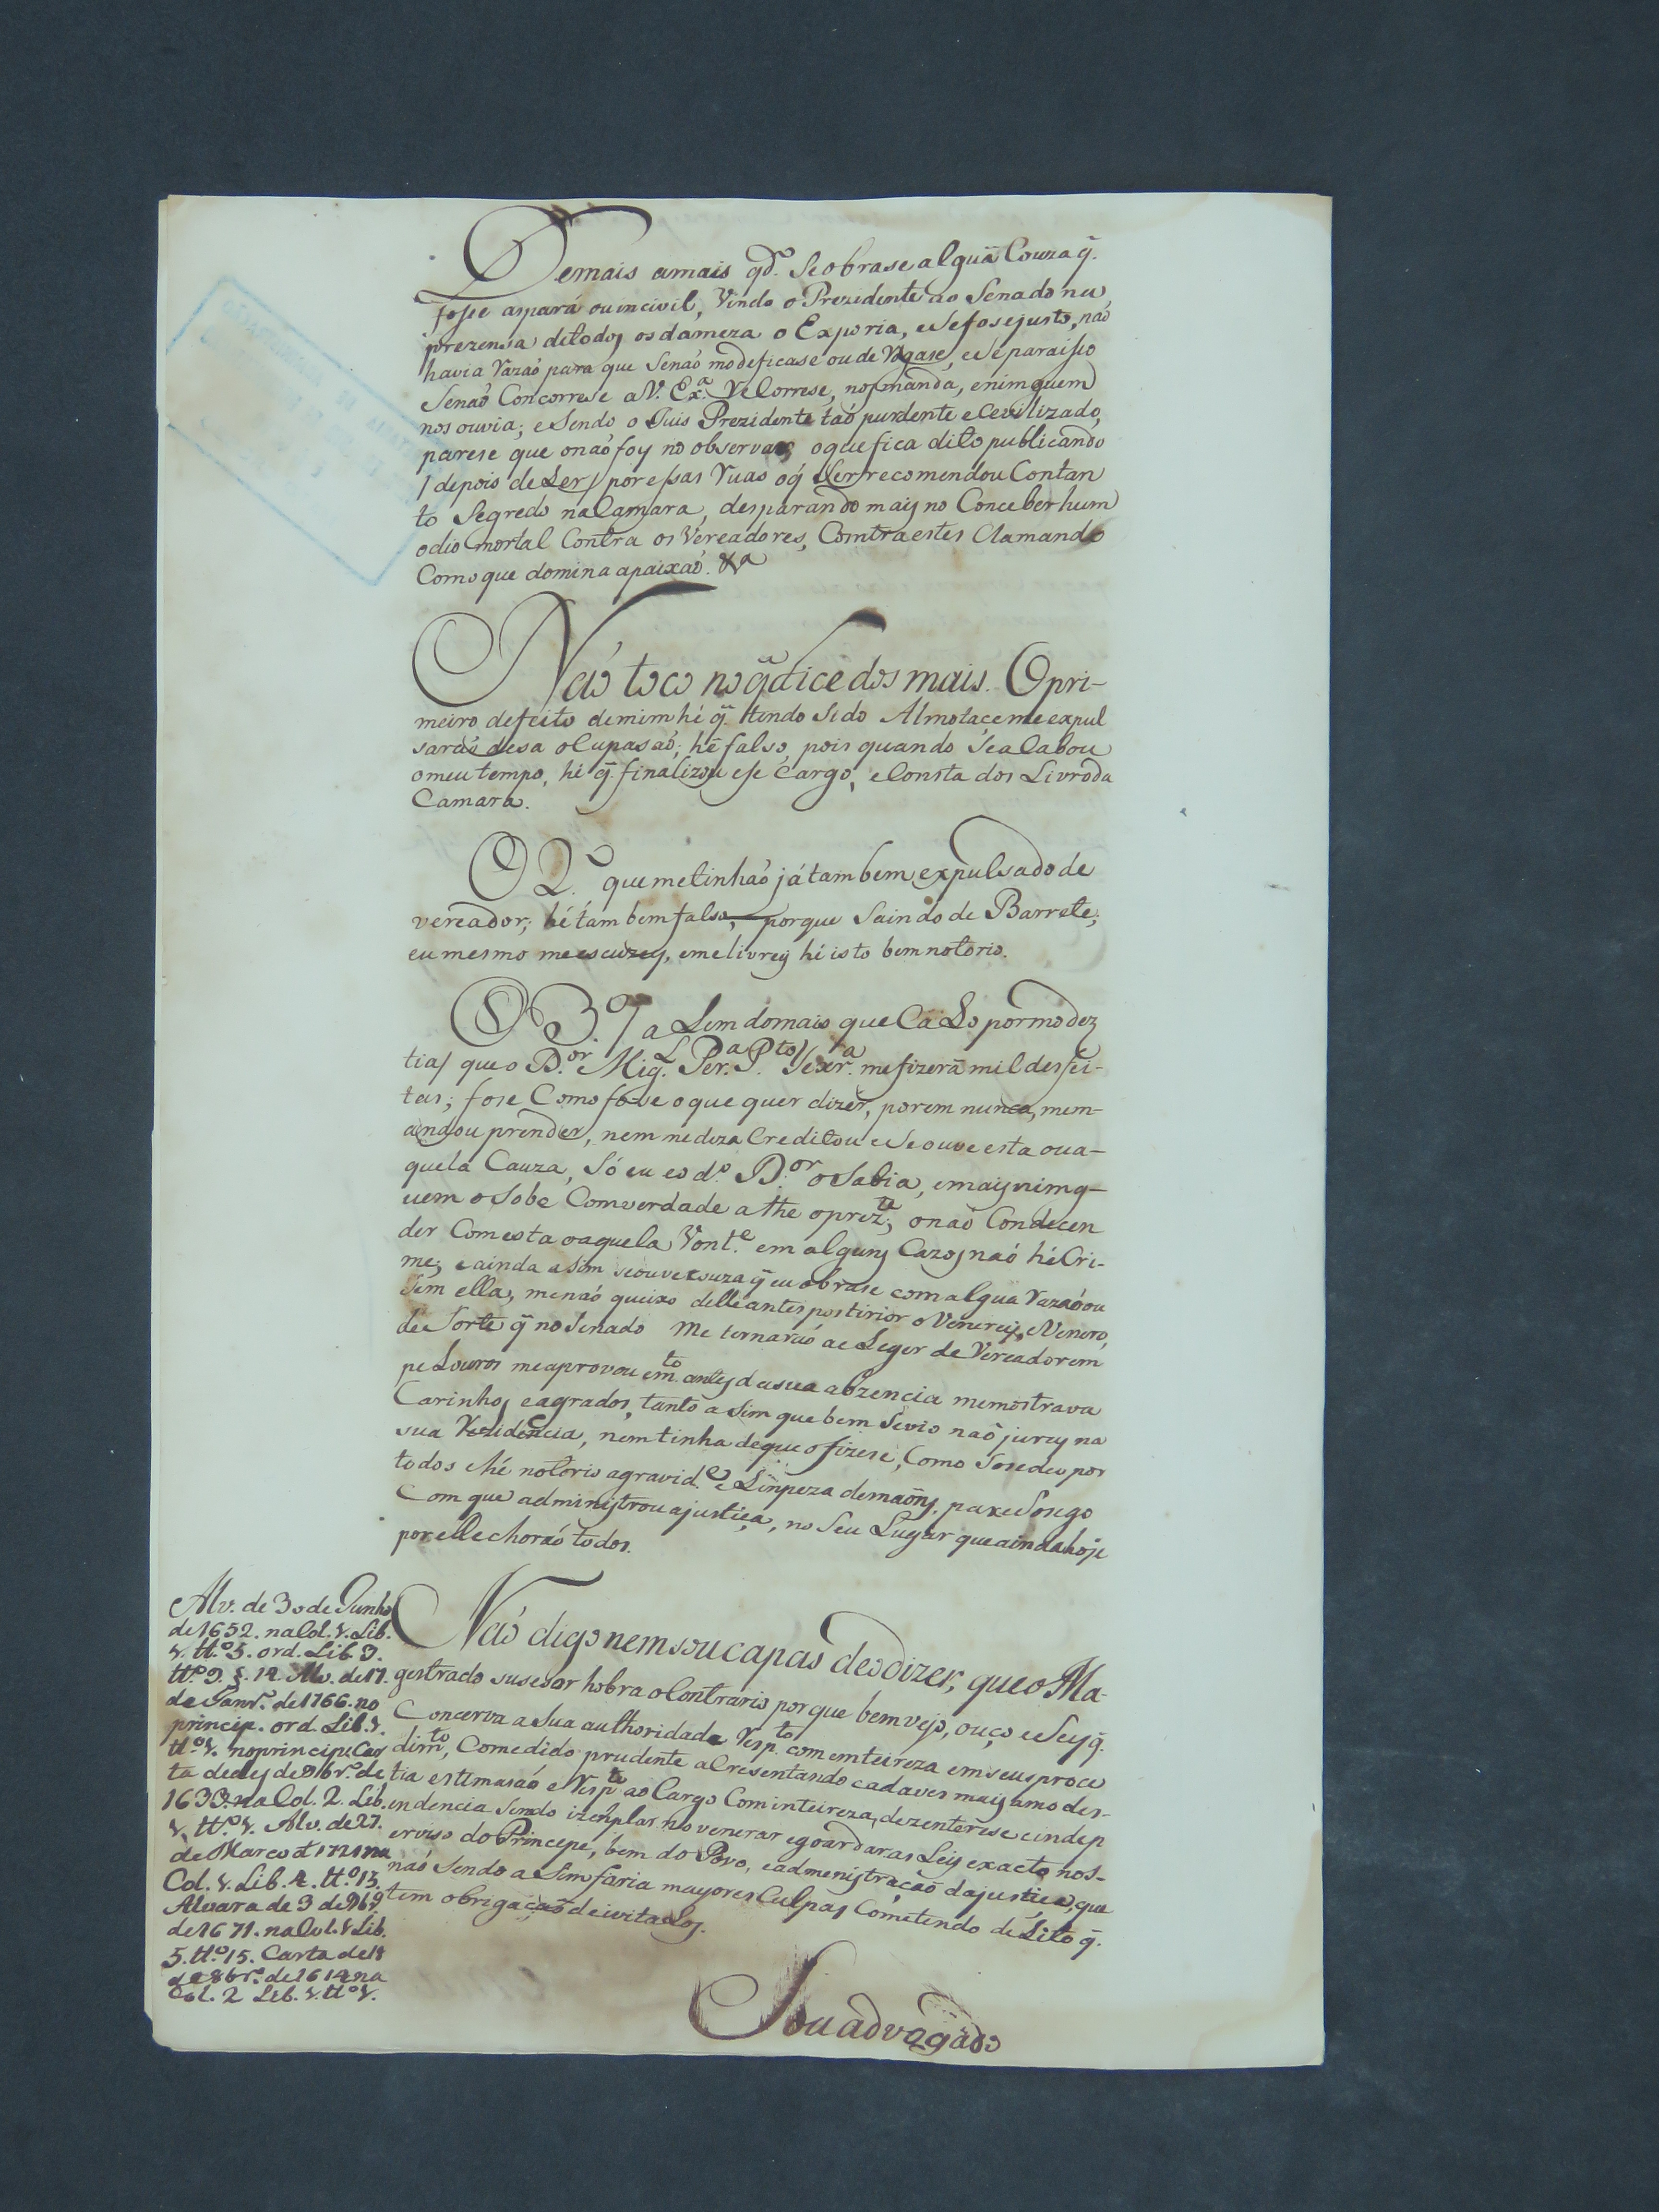 Demais amais qd.º Seobrase alguã Couza q̃.
foſse aspará ou incivil, Vindo o Prezidente ao Senado na
prezensa detodos os dameza o Exporia, esefosejusto, naó
havia Razaó para que Senaó modeficase ou de Rogase, e Se paraiſso
Senaó Concorrese a V. Ex.ª ReCorrese, nosmanda, eninguem
nos ouvia; e Sendo o Juis Prezidente taó purdente e Cevilizado,
parese que onaó foy no observar, oquefica dito publicando
/ depois de Ler / por eſsas Ruas oq̃ Ler recomendou Contan
to Segredo na Camara, desparando mais no Conceber hum
odio mortal Contra os Vereadores, Comtra estes Clamando
Como que domina apaixaó. &ª
Naó toco noq̃dice dos mais. Opri-
meiro defeito demim hé q̃. tendo Sido Almotaceme expul
saraó desa oCupasaó; hé falso, pois quando SeaCabou
omeu tempo, hé q̃. finalizou eſse Cargo, eConsta dos Livroda
Camara.
O 2.º que metinhaó já tambem expulsado de
vereador; hé tambem falso, porque Saindo de Barrete;
eu mesmo me escuzey, emelivrey hé isto bem notorio.
O 3.º / a Lem domais que CaLo pormodez
tia / que o D.or Mig.L Per.ª P.to Texr.ª mefizerã mil desfei-
tas; fose Como foſe oque quer dizer, porem nunca, mem-
andou prender, nem medezaCreditou eSeouve esta oua-
quela Cauza, Só eu eo d.º D.or oSabia, emais nimg-
uem oSobe Comverdade athe oprez.te; onaó Condecen
der Comesta oaquela Vont.e em alguns Cazos naó hé Cri-
me; e ainda aSim seouve couza q̃ eu obrase com algua Razaó ou
Sem ella, menaó queixo delle antes postirior o Venerey, eVenero,
de Sorte q̃ no Senado Me tornaraó aeLeger de Vereador em
peLouros meaprovou em.to antes dasua abzencia memostrava
Carinhos eagrados, tanto aSim que bem Sevio naõ jurey na
sua Rezidencia, nem tinha deque ofizese, Como Sosedeu por
todos ehé notorio agravid.e e Limpeza demaõns, pazeSosego
Com que administrou ajustiça, no Seu Lugar que aindahoje
por elle choraó todos.
Naó digo nem sou capas deodizer, que o Ma-
gestrado susesor hobra oContrario por que bem vejo, ouço eSey q̃.
Concerva aSua authoridade Resp.to com emteireza em seus proce
dim.to, Comedido prudente aCresentando cadaves mais amodes-
tia estimasaó e Resp.to ao Cargo Cominteireza, dezenterese eindep
endencia Sendo izemplar no venerar egoardar as Leis exacto nos-
erviso do Principe, bem do Povo, eadmenistraçaõ dajustiça, que
naó Sendo aSim faria mayores Culpas Cometendo deLito q̃.
tem obrigaçaõ deivitaLos.
Alv. de 30 de Junho
de 1652. na Col. 1. Lib.
1. tt.º 5. ord. Lib. 3.
tt.º 9. §. 14. Alv. de 17.
de Janr.º de 1766. no
princip. ord. Lib. 1.
tt.º 1. noprincip. Car
ta de ley de 9br.º de
1633. na Col. 2. Lib.
1. tt.º 1. Alv. de 27.
de Marco d 1721 na
Col. 1. Lib. 4. tt.º 13.
Alvara de 3 de 9br.º
de 1671. na Col. 1 Lib.
5. tt.º 15. Carta de 18
de 8br.º de 1614 na
Col. 2 Lib. 1. tt.º 1.
Sou advogado